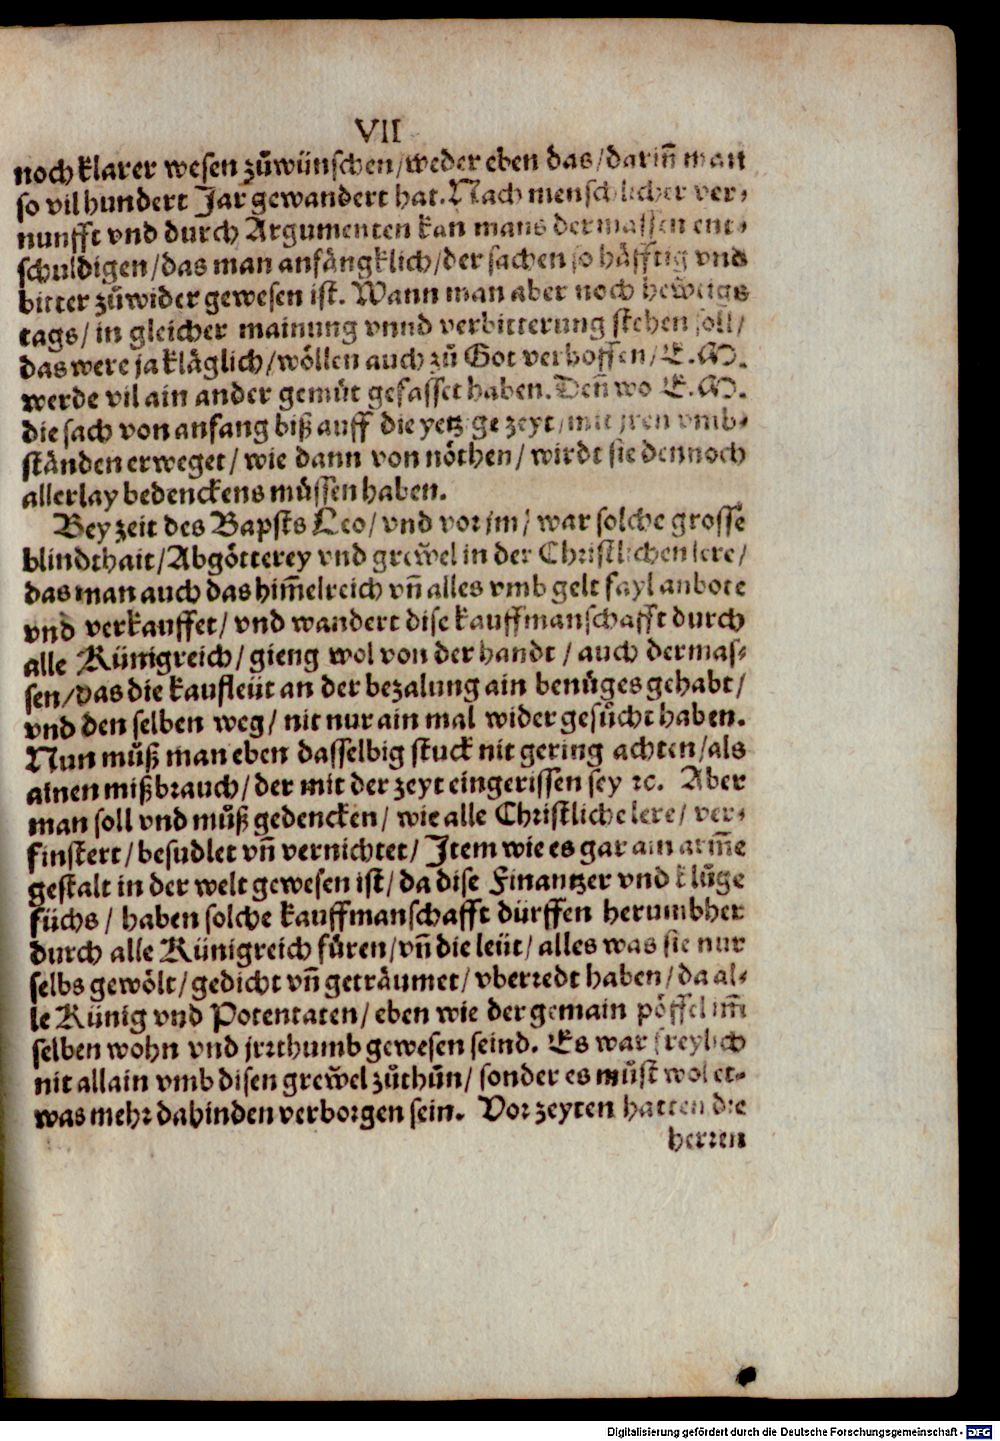 VII
noch klarer wesen zůwünschen/weder eben das/dariñ man
so vil hundert Jar gewandert hat. Nach menschlicher ver⸗
nunfft vnd durch Argumenten kan mans dermassen ent⸗
schuldigen/das man anfängklich/der sachen so häfftig vnd
bitter zůwider gewesen ist. Wann man aber noch hewtigs
tags/in gleicher mainung vnnd verbitterung stehen soll/
das were ja kläglich/wöllen auch zů Got verhoffen/E.M.
werde vil ain ander gemüt gefasset haben. Deñ wo E.M.
die sach von anfang biß auff die yetzge zeyt/mit jren vmb⸗
ständen erweget/wie dann von nöthen/wirdt sie dennoch
allerlay bedenckens müssen haben.
Bey zeit des Bapsts Leo/vnd vor jm/war solche grosse
blindthait/Abgötterey vnd grewel in der Christlichen lere/
das man auch das him̃elreich vñ alles vmb gelt fayl anbote
vnd verkauffet/vnd wandert dise kauffmanschafft durch
alle Künigreich/gieng wol von der handt/auch dermas⸗
sen/das die kaufleüt an der bezalung ain benüges gehabt/
vnd den selben weg/nit nur ain mal widergesůcht haben.
Nun můß man eben dasselbig stuck nit gering achten/als
ainen mißbrauch/der mit der zeyt eingerissen sey ꝛc. Aber
man soll vnd můß gedencken/wie alle Christliche lere/ver⸗
finstert/besudlet vñ vernichtet/Item wie es gar ain arm̃e
gestalt in der welt gewesen ist/da dise Finantzer vnd klůge
füchs/haben solche kauffmanschafft dürffen herumbher
durch alle Künigreich füren/vñ die leüt/alles was sie nur
selbs gewölt/gedicht vñ geträumet/vberredt haben/da al⸗
le Künig vnd Potentaten/eben wie der gemain pöffel im̃
selben wohn vnd jrrthumb gewesen seind. Es war freylich
nit allain vmb disen grewel zůthůn/sonder es můst wol et⸗
was mehr dahinden verborgen sein. Vor zeyten hatten die
herren
Digitalisierung gefördert durch die Deutsche Forschungsgemeinschaft - DFG